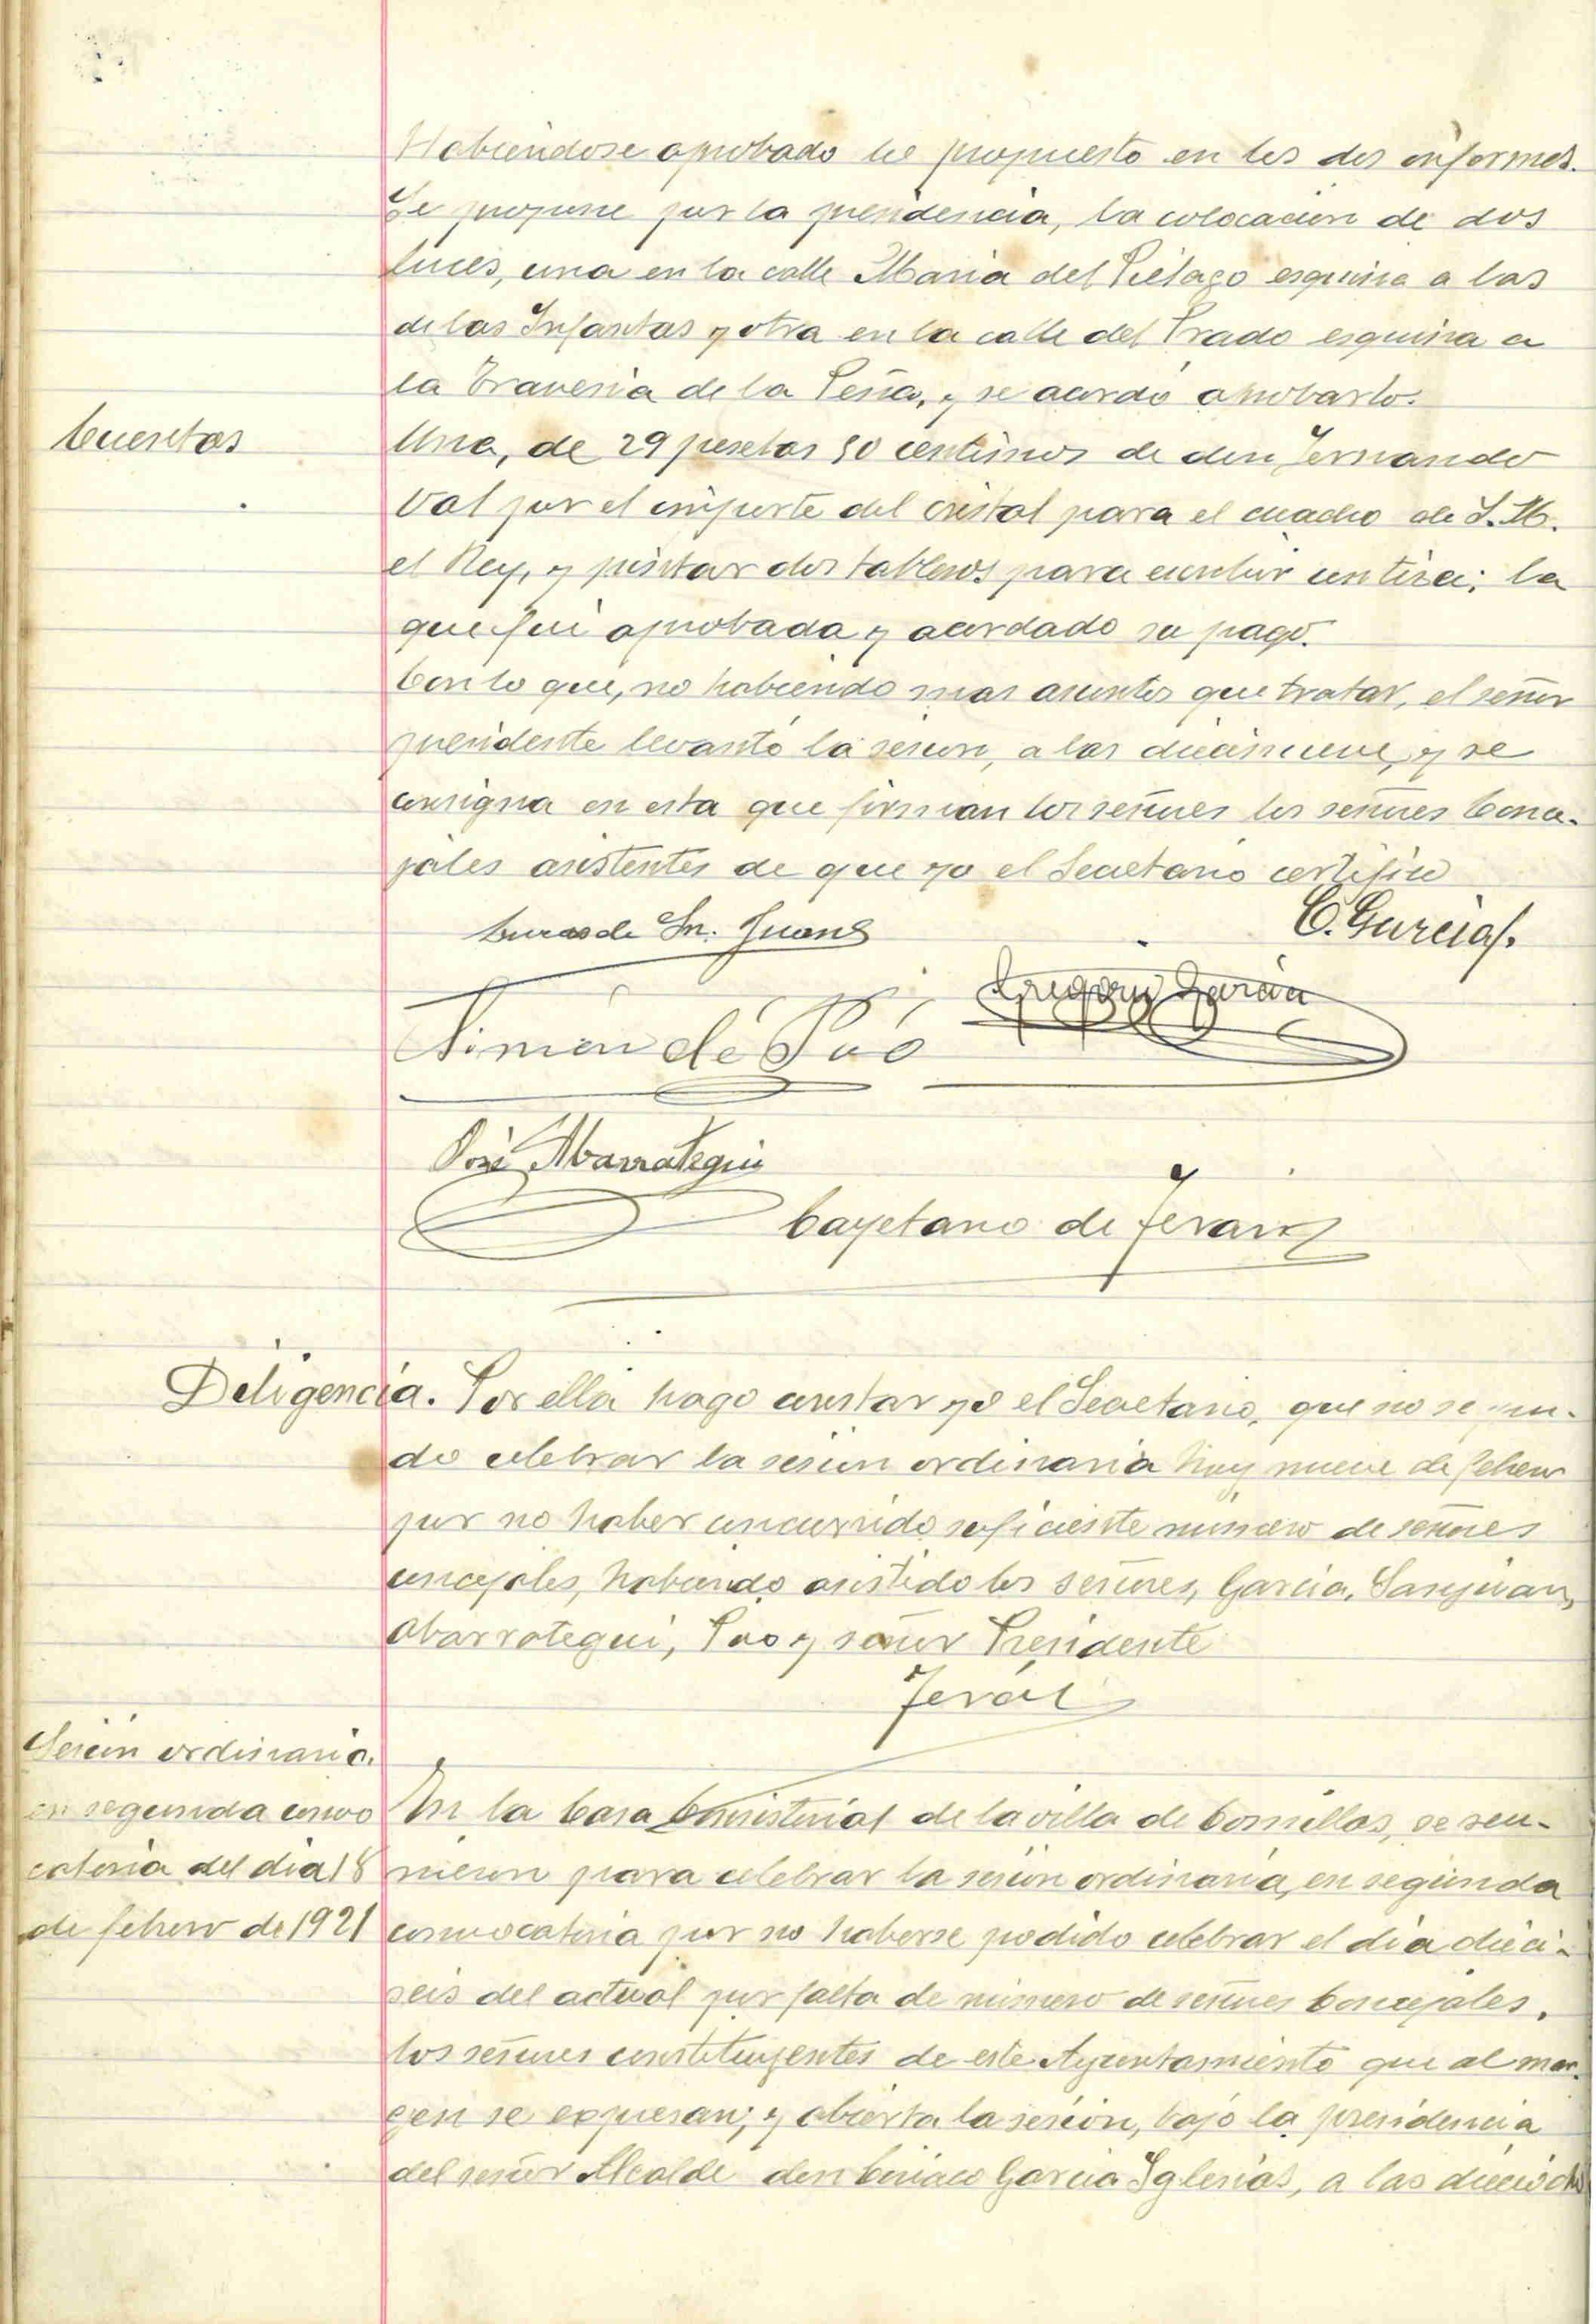 Habiendose aprobado lo propuesto en los dos informes.
Se propone por la presidencia, la colocacion de dos
luces, una en la calle Maria del Piélago esquina a las
de las Infantas y otra en la calle del Prado esquina a
la Travesia de la Peña, y se acordó aprobarlo.
Cuentas
Una, de 29 pesetas 50 centimos de don Fernando
Val por el importe del cristal para el cuadro de S. M.
el Rey, y pintar dos tableros para escribir con tiza; la
que fue aprobada y acordado su pago.
Con lo que, no habiendo mas asuntos que tratar, el señor
presidente levantó la sesion, a las diecinueve, y se
consigna en esta que firman los señores los señores Conce-
jales asistentes de que yo el Secretario certifico
Lucas de Sn. Juan
C. Garcia
Gregorio Garcia
Simon de Pao
José Abarrategui
Cayetano de Teran
Deligencia. Por ella hago constar yo el Secretario, que no se pu-
do celebrar la sesion ordinaria hoy nueve de febrero
por no haber concurrido suficiente numero de señores
concejales, habiendo asistido los señores, Garcia, Sanjuan,
Abarrategui, Pao y señor Presidente
Terán
Sesion ordinaria.
en segunda convo
catoria del dia 18
de febrero de 1921
En la Casa Consistorial de la villa de Comillas, se reu-
nieron para celebrar la sesion ordinaria, en segunda
convocatoria por no haberse podido celebrar el dia dieci-
seis del actual por falta de numero de señores Concejales,
los señores constituyentes de este Ayuntamiento que al mar-
gen se expresan; y abierta la sesión, bajo la presidencia
del señor Alcalde don Ciriaco Garcia Iglesias, a las dieciocho